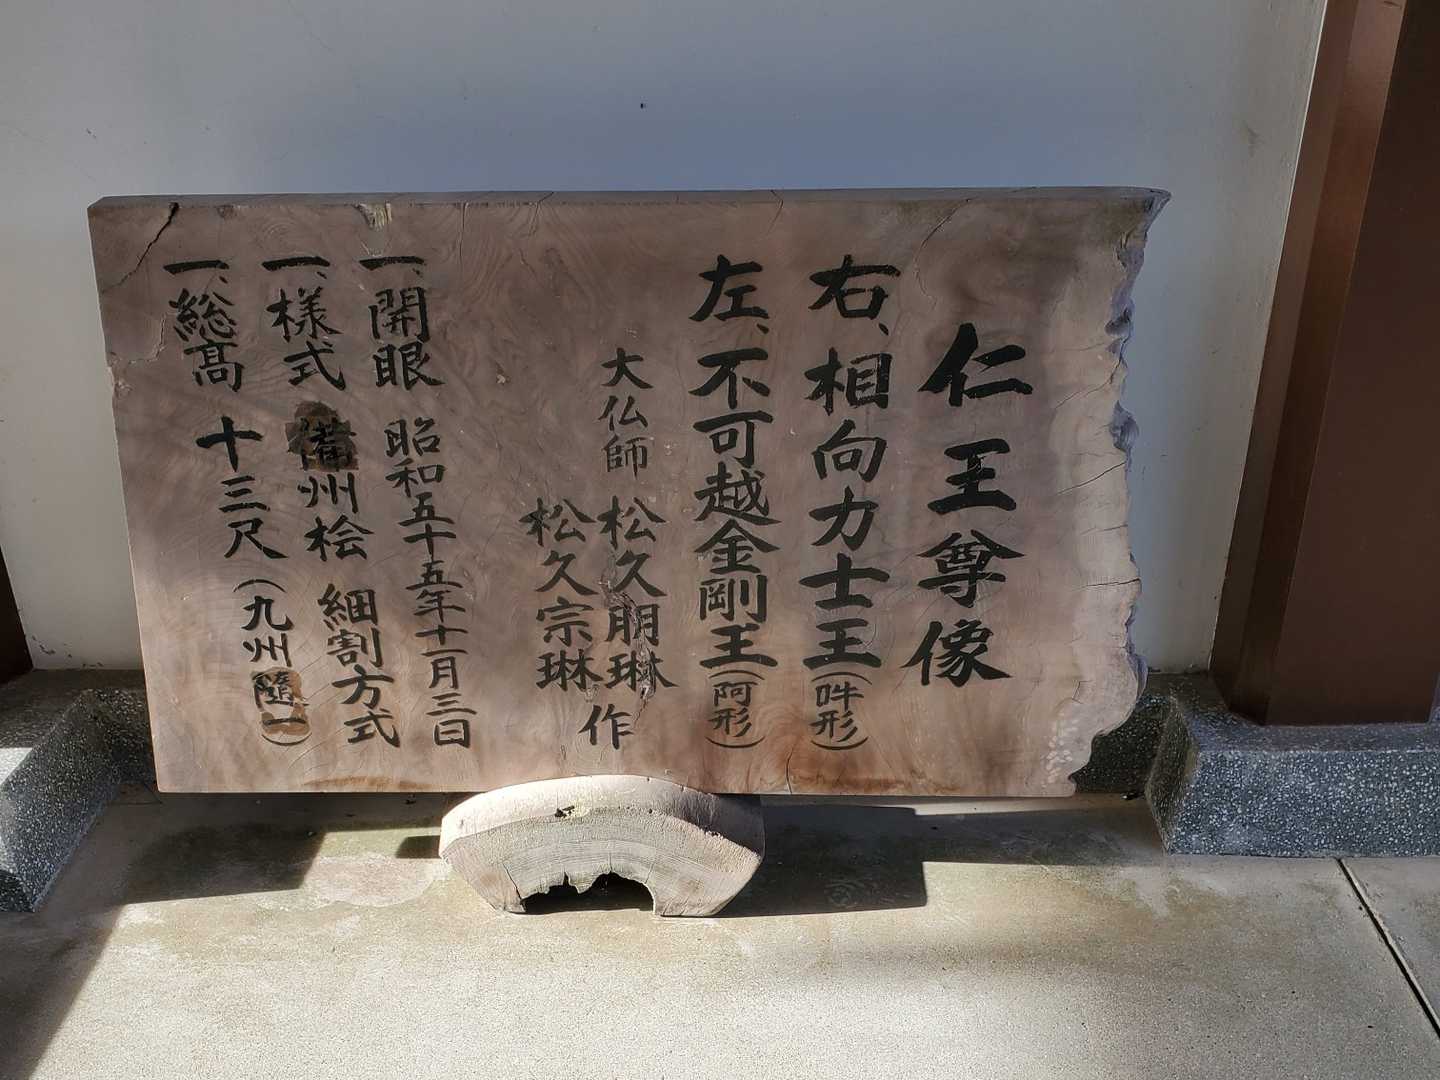 仁王尊像
右、相向力士王(吽形)
左、不可越金剛王(阿形)
大仏師 松久朋琳
松久宗琳作
一、開眼 昭和五十五年十一月三日
一、様式 備州桧 細割方式
一、総高 十三尺(九州随一)